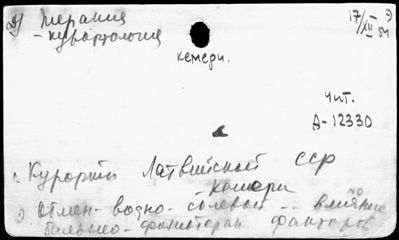 2) Терапия
- курортология
17/XII - 54 Э
кемери.
Чит.
Д-12330
1. Курорты Латвийской ССР
- кемери
2. Обмен - водно-солевой -- влияние
бальнео- факторов